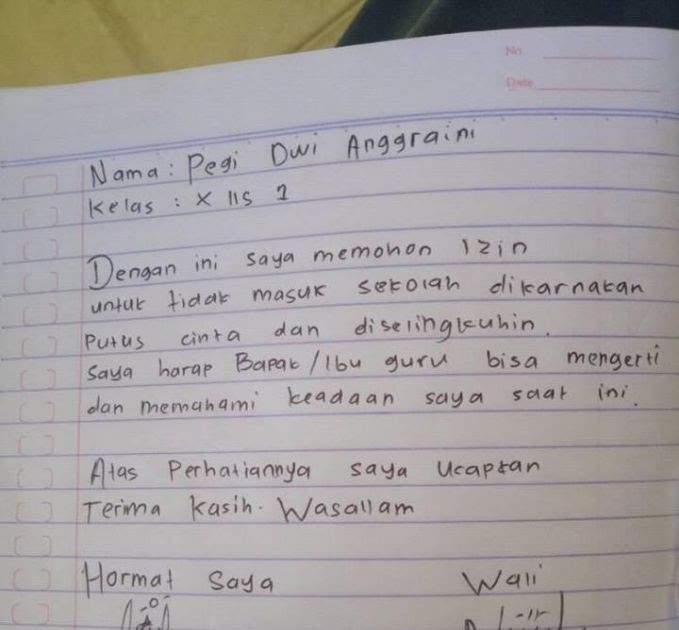 No.
Date
Nama : Pegi Dwi Anggraini
Kelas : X IIS 1
Dengan ini saya memohon Izin
untuk tidak masuk sekolah dikarnakan
Putus cinta dan diselingkuhin.
Saya harap Bapak/Ibu guru bisa mengerti
dan memahami keadaan saya saat ini.
Atas Perhatiannya saya Ucapkan
Terima Kasih. Wasallam
Hormat Saya Wali